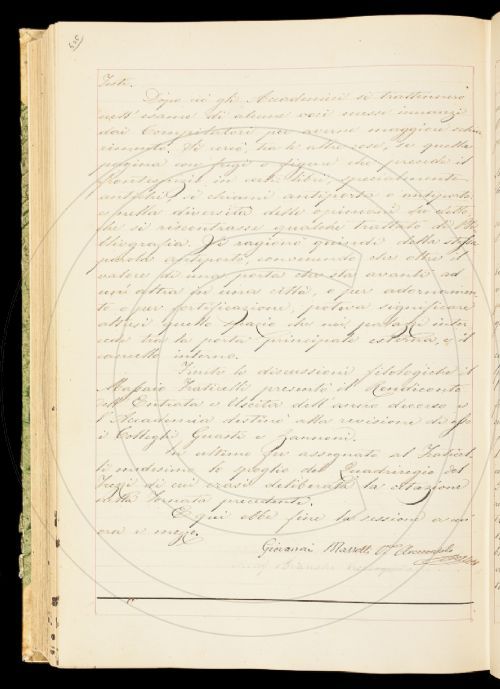 Testi.
Dopo ciò gli Accademici si trattennero
nell'esame di alcune voci messe innanzi
dai Compilatori per averne maggiore schia
rimento. Si cercò, tra le altre cose, se quella
pagina con fregi o figure che precede il
frontespizio in certi libri, specialmente
antichi, si chiami antiporta o antiporto,
e nella diversità delle opinioni fu detto,
che si riscontrasse qualche trattato di Bi
bliografia. Si ragionò quindi della stessa
parola antiporto, convenendo che oltre il
valore di una porta che sta avanti ad
un'altra in una città, o per adornamen
to o per fortificazione, poteva significare
altresì quello spazio che nei
tra la porta principale esterna, e il
cancello interno.
Finite le discussioni filologiche il
Massaio Fraticelli presentò il Rendiconto
dell'Entrata e Uscita dell'anno decorso e
l'Accademia destinò alla revisione di esso
i Colleghi Guasti e Zannoni.
In ultimo fu assegnato al Fraticel
li medesimo lo spoglio del Quadriregio del
Frezzi di cui erasi deliberata la citazione
nella tornata precedente.
E qui ebbe fine la sessione a un'
ora e mezzo.
Giovanni